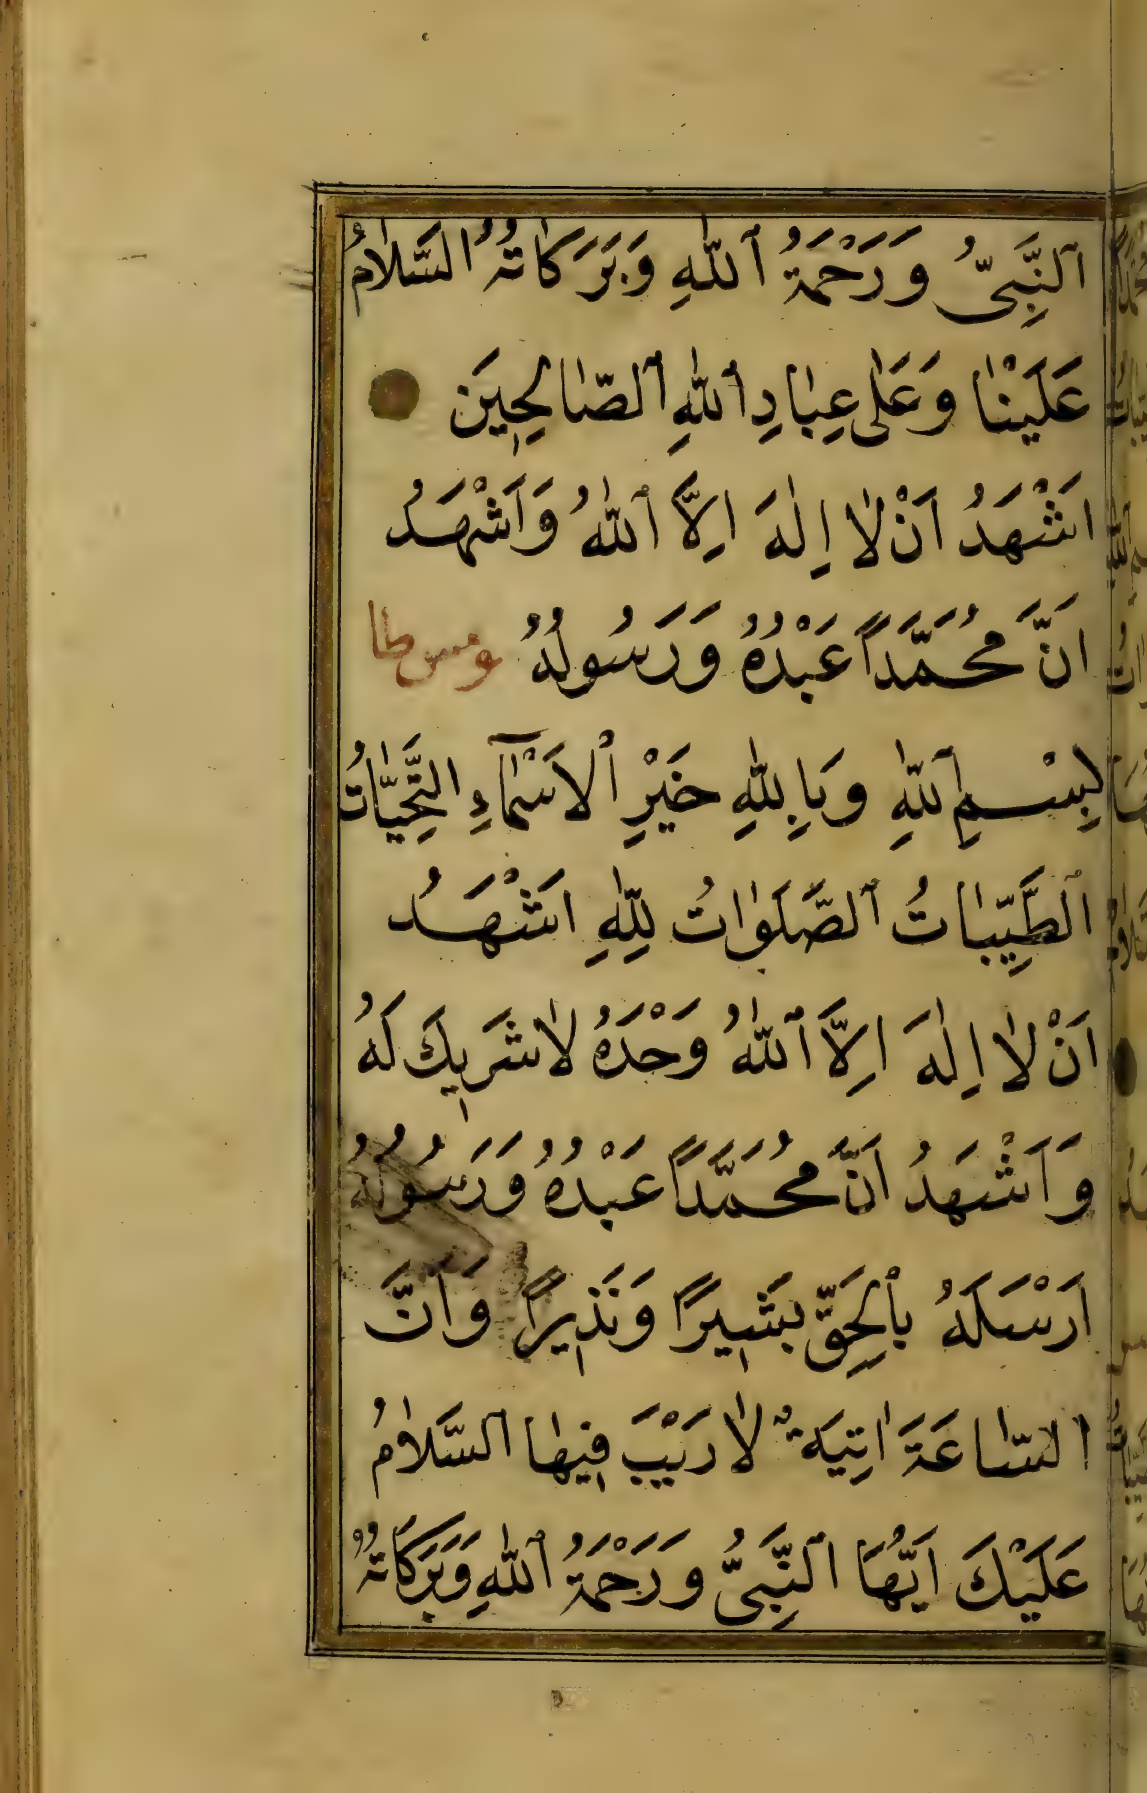 اَلنَّبِىُّ وَرَحْمَةُ اَللّٰهِ وَبَرَكَاتُهُ السَّلاٰمُ
عَلَيْنٰا وَعَلٰى عِبٰادِ اَللّٰهِ اَلصّٰالِحِينَ
اَشْهَدُ اَنْ لاٰ اِلٰهَ اِلاَّ اَللّٰهُ وَاَشْهَدُ
اَنَّ مُحَمَّداً عَبْدُهُ وَرَسُولُهُ
بِسْمِ اللّٰهِ وَبِاللّٰهِ خَيْرِ اْلاَسْمٰآءِ التَّحِيّٰاتُ
اَلطَّيِّبٰاتُ اَلصَّلَوٰاتُ لِلّٰهِ اَشْهَدُ
اَنْ لاٰ اِلٰهَ اِلاَّ اَللّٰهُ وَحْدَهُ لاٰ شَرِيكَ لَهُ
وَاَشْهَدُ اَنَّ مُحَمَّداً عَبْدُهُ وَرَسُولُهُ
اَرْسَلَهُ بِالْحَقِّ بَشِيرًا وَنَذِيرًا وَاَنَّ
السّٰاعَةَ اٰتِيَةٌ لاٰ رَيْبَ فِيهٰا اَلسَّلاٰمُ
عَلَيْكَ اَيُّهَا اَلنَّبِىُّ وَرَحْمَةُ اَللّٰهِ وَبَرَكَاتُهُ